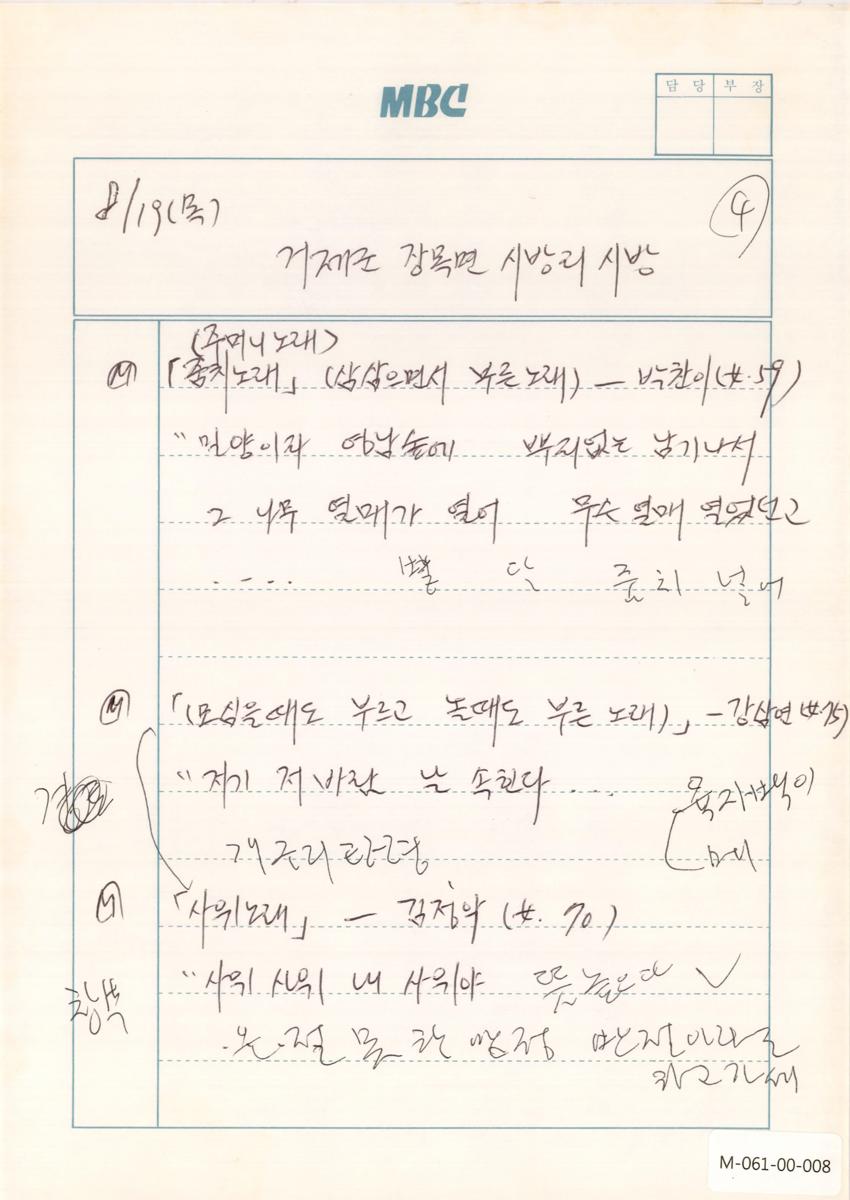 MBC
담 당 부 장
8/19(목)
④
거제군 장목면 시방리 시방
(주머니노래>
Ⓜ 「줌치노래」 (삼삼으면서 부른노래) — 박찬이(女.59)
" 밀양이라 영남숲에 뿌리없는 남기나서
그 나무 열매가 열어 무슨 열매 열었던고
..... 달 줌치 널어
Ⓜ 「(모심을때도 부르고 놀때도 부른 노래)」 - 강삼연(女.75)
" 저기 저 바람 날 속힌다 ...
개구리타령
Ⓜ 「사위노래」 — 김정악 (女. 70)
" 사위 사위 내 사위야 뜻높으다 ✓
M-061-00-008